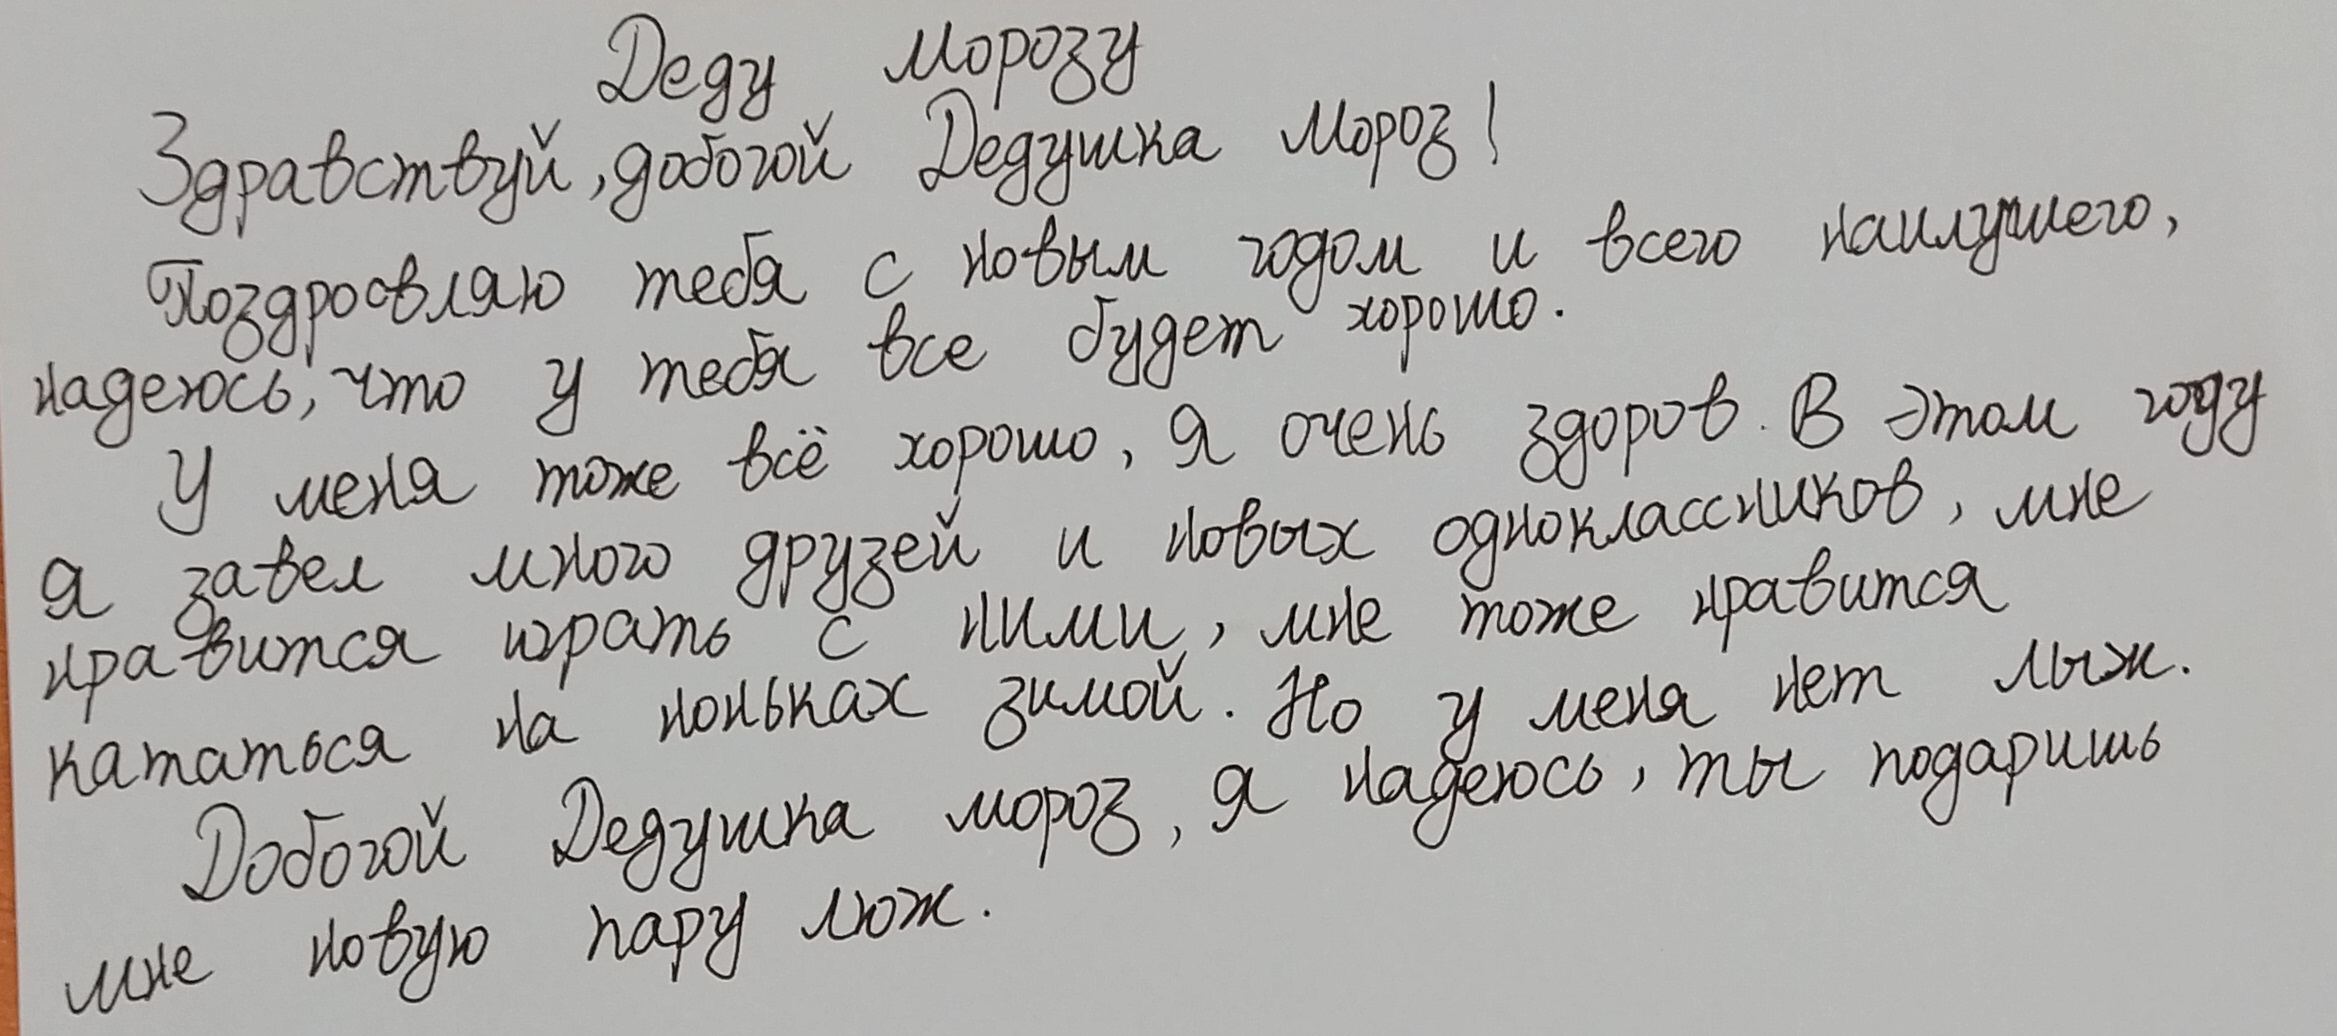 Деду морозу
Здравствуй, добогой Дедушка Мороз!
Поздровляю тебя с новым годом и всего наилушего,
надеюсь, что у тебя все будет хорошо.
У меня тоже всё хорошо, я очень здоров. В этом году
я завел много друзей и новых одноклассников, мне
нравится играть с ними, мне тоже нравится
кататься на ноньках зимой. Но у меня нет лыж.
Добогой Дедушка мороз, я надеюсь, ты подаришь
мне новую пару люж.